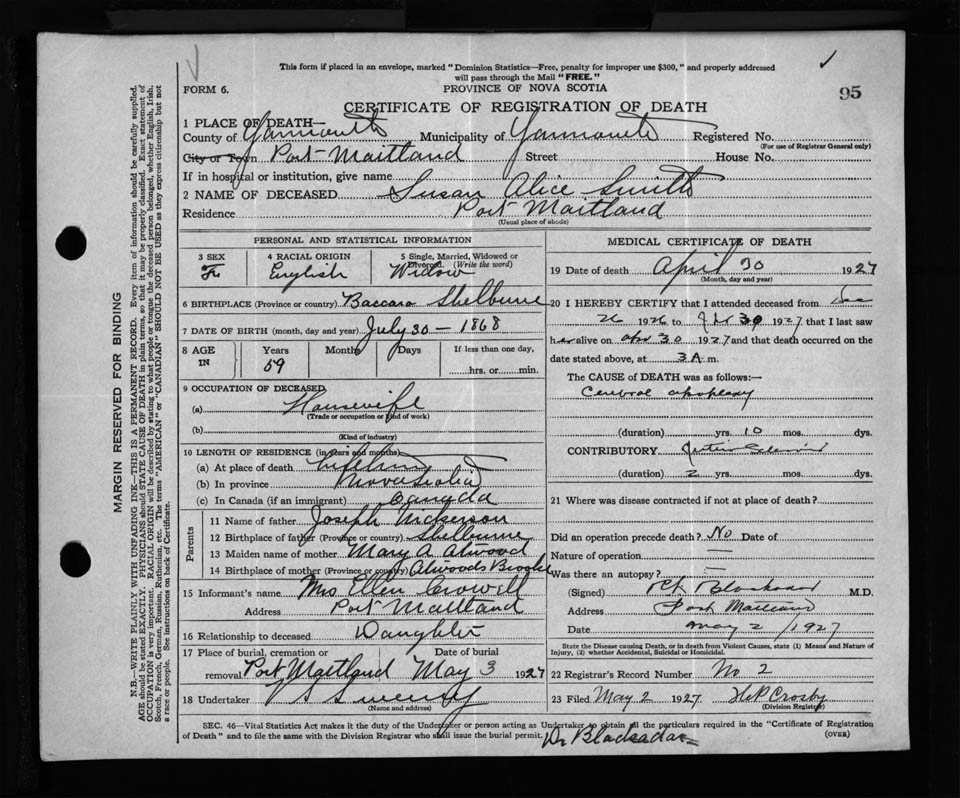 This form if placed in an envelope, marked "Dominion Statistics—Free, penalty for improper use $300," and properly addressed
will pass through the Mail "FREE."
FORM 6.
PROVINCE OF NOVA SCOTIA
95
CERTIFICATE OF REGISTRATION OF DEATH
1 PLACE OF DEATH—
County of Yarmouth Municipality of Yarmouth Registered No.
(For use of Registrar General only)
City or Town Port Maitland Street House No.
If in hospital or institution, give name
2 NAME OF DECEASED Susan Alice Smith
Residence Port Maitland
(Usual place of abode)
PERSONAL AND STATISTICAL INFORMATION
3 SEX 4 RACIAL ORIGIN 5 Single, Married, Widowed or Divorced. (Write the word)
English Widow
6 BIRTHPLACE (Province or country) Baccaro Shelburne
7 DATE OF BIRTH (month, day and year) July 30 - 1868
8 AGE IN Years Months Days If less than one day,
59 hrs. or min.
9 OCCUPATION OF DECEASED
(a) Housewife
(Trade or occupation or kind of work)
(b)
(Kind of industry)
10 LENGTH OF RESIDENCE (in years and months)
(a) At place of death
(b) In province Nova Scotia
(c) In Canada (if an immigrant) Canada
Parents
11 Name of father Joseph Nickerson
12 Birthplace of father (Province or country) Shelburne
13 Maiden name of mother Mary A Atwood
14 Birthplace of mother (Province or country) Atwoods Brook
15 Informant's name Mrs Ellen Crowell
Address Port Maitland
16 Relationship to deceased Daughter
17 Place of burial, cremation or Date of burial
removal Port Maitland May 3 1927
18 Undertaker V S Sweeny
(Name and address)
MEDICAL CERTIFICATE OF DEATH
19 Date of death April 30 1927
(Month, day and year)
20 I HEREBY CERTIFY that I attended deceased from
26 1926 to 30 1927 that I last saw
her alive on apr 30 1927 and that death occurred on the
date stated above, at 3 A m.
The CAUSE of DEATH was as follows:—
Cerebral apoplexy
(duration) yrs. 10 mos. dys.
CONTRIBUTORY
(duration) 2 yrs. mos. dys.
21 Where was disease contracted if not at place of death?
Did an operation precede death? No Date of
Nature of operation —
Was there an autopsy? —
(Signed) Blackadar M.D.
Address Port Maitland
Date May 2 / 1927
State the Disease causing Death, or in death from Violent Causes, state (1) Means and Nature of
Injury, (2) whether Accidental, Suicidal or Homicidal.
22 Registrar's Record Number No 2
23 Filed May 2 1927 H P Crosby
(Division Registrar)
SEC. 46—Vital Statistics Act makes it the duty of the Undertaker or person acting as Undertaker to obtain all the particulars required in the "Certificate of Registration
of Death" and to file the same with the Division Registrar who shall issue the burial permit.
(OVER)
Dr Blackadar
MARGIN RESERVED FOR BINDING
N.B.—WRITE PLAINLY WITH UNFADING INK—THIS IS A PERMANENT RECORD. Every item of information should be carefully supplied.
AGE should be stated EXACTLY. PHYSICIANS should STATE CAUSE OF DEATH in plain terms, so that it may be properly classified. Exact statement of
OCCUPATION is very important. RACIAL ORIGIN will be described by stating to what people or tongue the deceased person belonged, whether English, Irish,
Scotch, French, German, Russian, Ruthenian, etc. The terms "AMERICAN" or "CANADIAN" SHOULD NOT BE USED as they express citizenship but not
a race or people. See instructions on back of Certificate.